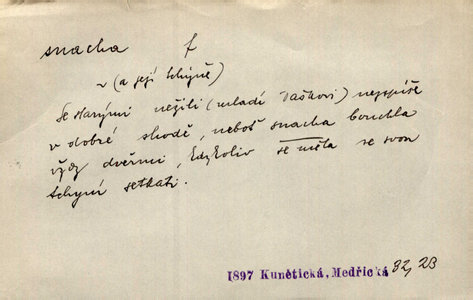 snacha f
v (a její tchýně)
Se starými nežili (mladí Vaškovi) nejspíše
v dobré shodě, neboť snacha bouchla
vždy dveřmi, kdykoliv se měla se svou
tchyní setkati.
1897 Kunětická, Medřická 82, 23